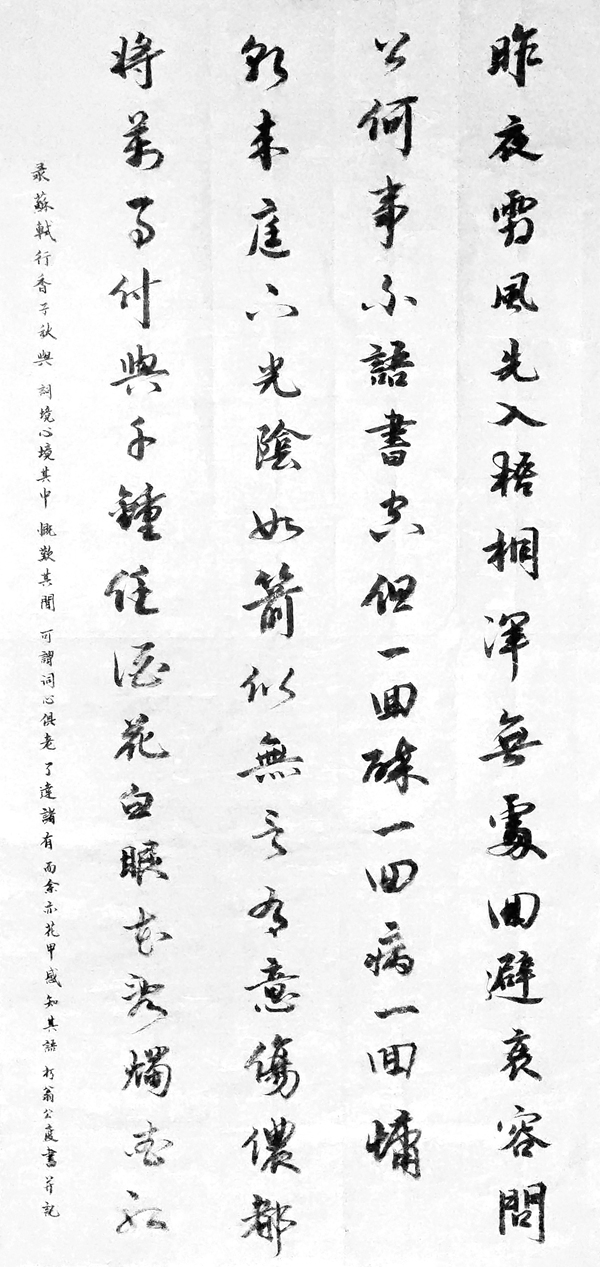 昨夜霜風先入梧桐渾無處回避衰容問
公何事不語書空但一回醉一回病一回慵
朝来庭下光陰如箭似無言有意傷儂都
将萬事付與千鍾任酒花白眼花亂燭花紅
录蘇軾行香子秋與 詞境心境其中 慨歎其間 可謂词心俱老 了達諸有 而余亦花甲感知其語 翁公度書并記